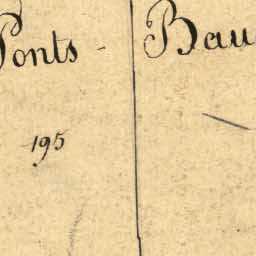 Ponts
Bau
195